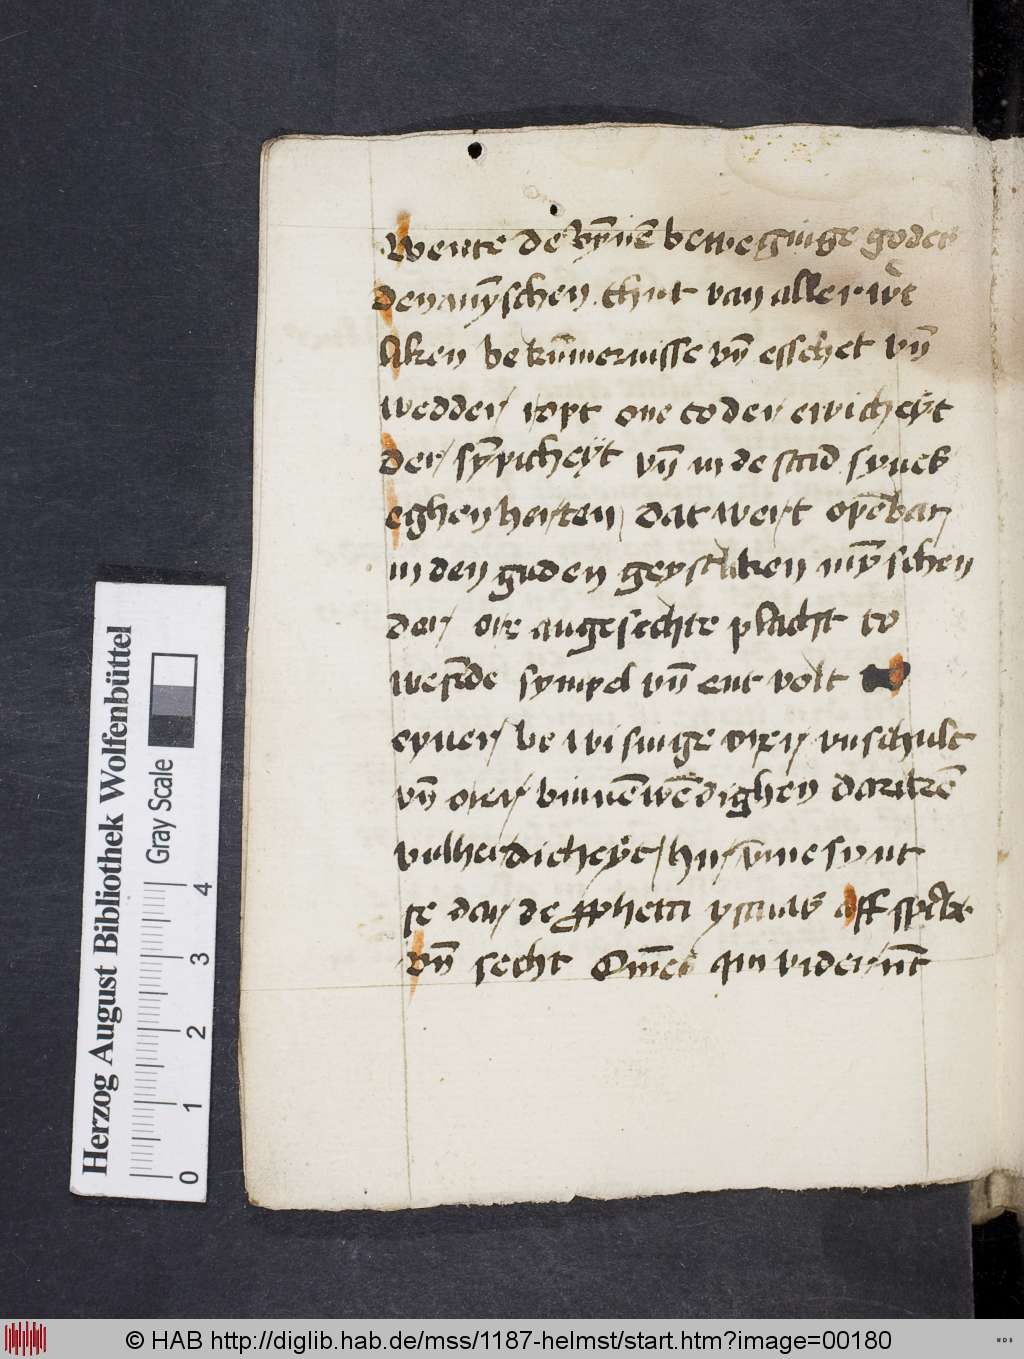 wente de bȳnē beweginge godes
den mȳschen thut van aller wē
liken bekūmernisse vn̄ esschet vn̄
wedder ropt one to der ewicheyt
der sȳplicheyt vn̄ in de stad synes
eghen herten dat wert opēbar
in den guden geystliken mȳschen
der ore angesechte plecht to
wesēde sympel vn̄ ent volt
eyner bewisinge orer vnschult
vn̄ orer binnēwēdighen
vulherdicheyt hir v̄me synt
se dar de ꝓphetā ysaias aff
vn̄ secht Om̄es qui viderūt
Herzog August Bibliothek Wolfenbüttel
Gray Scale
0 1 2 3 4
© HAB http://diglib.hab.de/mss/1187-helmst/start.htm?image=00180